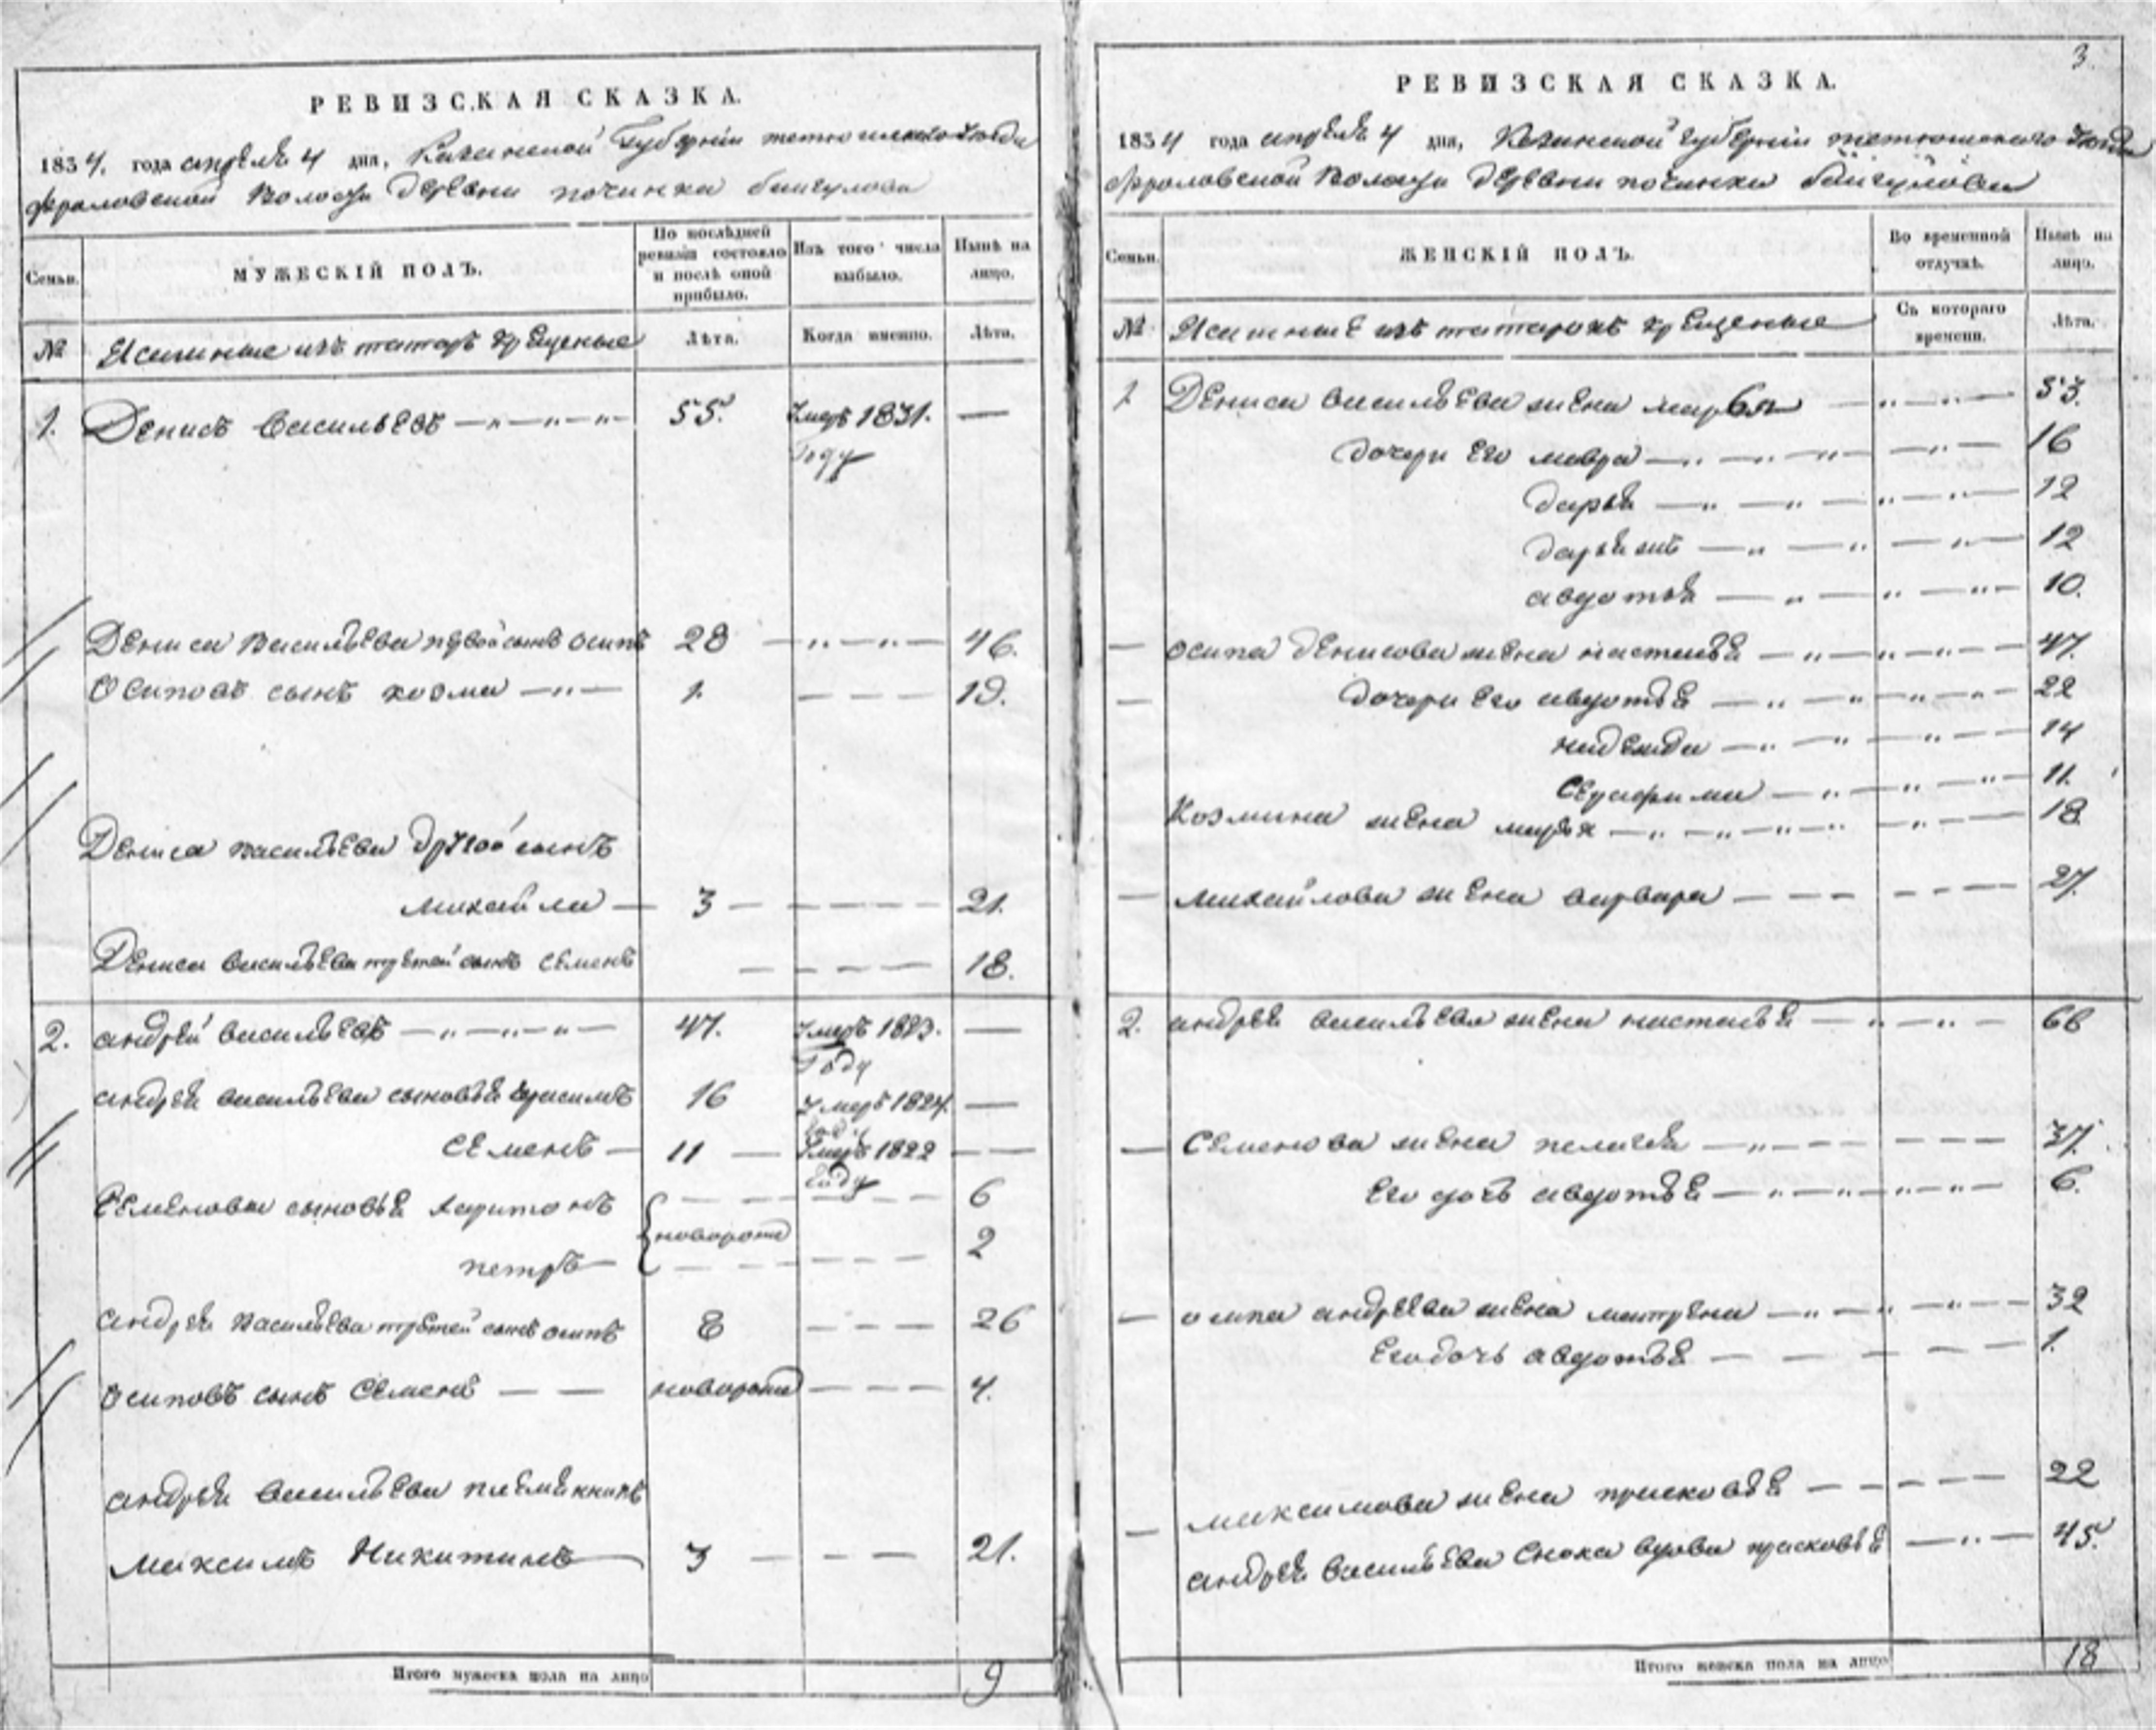 РЕВИЗСКАЯ СКАЗКА.
1834. года апрѣля 4 дня, Казанской Губерніи тетюшскаго Уезда
фроловской Волости Деревни починка баигулова
Семьи.
МУЖЕСКІЙ ПОЛЪ.
По послѣдней ревизіи состояло и послѣ оной прибыло.
Изъ того числа выбыло.
Нынѣ на лицо.
№
Ясашные изъ татаръ крещеные
Лѣта.
Когда именно.
Лѣта.
1. Денисъ Васильевъ 55. Умеръ 1831. —
Году
Дениса Васильева первой сынъ осипъ 28 46.
Осиповъ сынъ козма 1. 19.
Дениса васильева другой сынъ
михайла 3 21.
Дениса васильева третей сынъ семенъ 18.
2. андрей васильевъ 47. умеръ 1823. —
Году
андрея васильева сыновья герасимъ 16 умеръ 1824. —
году
семенъ 11 умеръ 1822 —
Году
Семеновы сыновья харитонъ 6
новорож
петръ 2
андрея васильева третей сынъ осипъ 8 26
осиповъ сынъ Семенъ новорож 4.
андрея васильева племянникъ
максимъ Никитинъ 3 21.
Итого мужеска пола на лицо 9
3.
РЕВИЗСКАЯ СКАЗКА.
1834 года апрѣля 4 дня, Казанской губерніи тетюшскаго Уезда
фроловской Волости деревни починки баигуловы
Семьи.
ЖЕНСКІЙ ПОЛЪ.
Во временной отлучкѣ.
Нынѣ на лицо.
№
Ясашные изъ татаръ крещеные
Съ котораго времени.
Лѣта.
1 Дениса васильева жена марья 53.
дочери его мавра 16
дарья 12
дарья жъ 12
авдотья 10.
— осипа денисова жена настасья 47.
— дочери его авдотья 22
надежда 14
Серафима 11.
Козмина жена марья 18
— михайлова жена варвара 27.
2. андрея васильева жена настасья 66
— Семенова жена пелагея 37.
его дочь авдотья 6.
— осипа андреева жена матрена 32
его дочь авдотья 1.
— максимова жена прасковья 22
андрея васильева Сноха вдова прасковья 45.
Итого женска пола на лицо 18